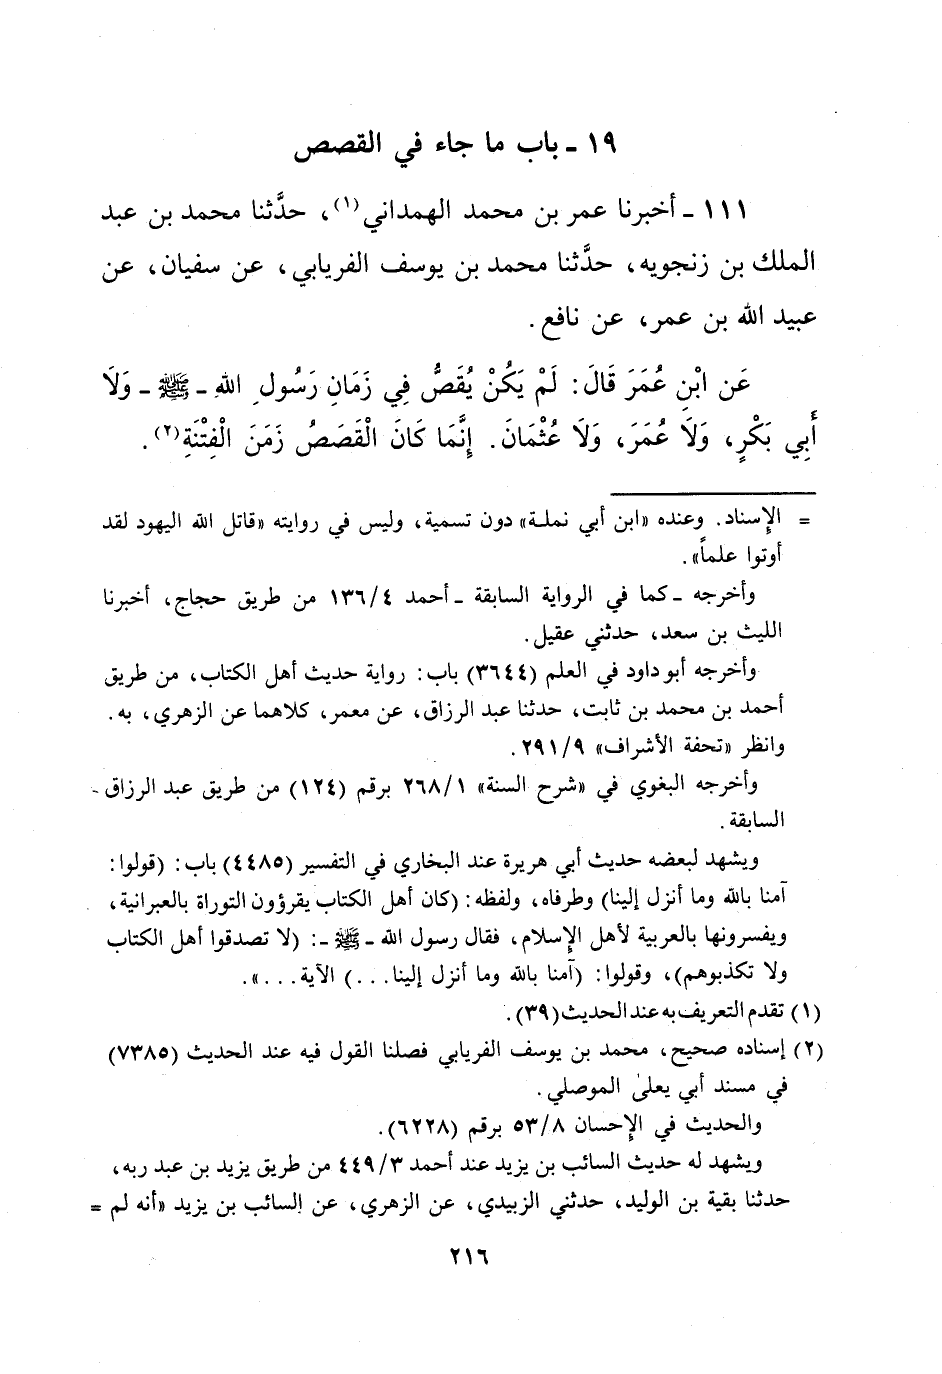 ١٩ ـ باب ما جاء في القصص
١١١ ـ أخبرنا عمر بن محمد الهمداني(١)، حدَّثنا محمد بن عبد
الملك بن زنجويه، حدَّثنا محمد بن يوسف الفريابي، عن سفيان، عن
عبيد الله بن عمر، عن نافع.
عَن ابْنِ عُمَرَ قَالَ: لَمْ يَكُنْ يُقَصُّ فِي زَمَانِ رَسُولِ اللهِ ـ ﷺ ـ وَلَا
أَبِي بَكْرٍ، وَلَا عُمَرَ، وَلَا عُثْمَانَ. إِنَّمَا كَانَ الْقَصَصُ زَمَنَ الْفِتْنَةِ(٢).
= الإِسناد. وعنده «ابن أبي نملة» دون تسمية، وليس في روايته «قاتل الله اليهود لقد
أوتوا علماً».
وأخرجه ـ كما في الرواية السابقة ـ أحمد ١٣٦/٤ من طريق حجاج، أخبرنا
الليث بن سعد، حدثني عقيل.
وأخرجه أبو داود في العلم (٣٦٤٤) باب: رواية حديث أهل الكتاب، من طريق
أحمد بن محمد بن ثابت، حدثنا عبد الرزاق، عن معمر، كلاهما عن الزهري، به.
وانظر «تحفة الأشراف» ٢٩١/٩.
وأخرجه البغوي في «شرح السنة» ٢٦٨/١ برقم (١٢٤) من طريق عبد الرزاق
السابقة.
ويشهد لبعضه حديث أبي هريرة عند البخاري في التفسير (٤٤٨٥) باب: (قولوا:
آمنا بالله وما أنزل إلينا) وطرفاه، ولفظه: (كان أهل الكتاب يقرؤون التوراة بالعبرانية،
ويفسرونها بالعربية لأهل الإِسلام، فقال رسول الله ـ ﷺ ـ: (لا تصدقوا أهل الكتاب
ولا تكذبوهم)، وقولوا: (آمنا بالله وما أنزل إلينا...) الآية...».
(١) تقدم التعريف به عند الحديث (٣٩).
(٢) إسناده صحيح، محمد بن يوسف الفريابي فصلنا القول فيه عند الحديث (٧٣٨٥)
في مسند أبي يعلىٰ الموصلي.
والحديث في الإِحسان ٥٣/٨ برقم (٦٢٢٨).
ويشهد له حديث السائب بن يزيد عند أحمد ٤٤٩/٣ من طريق يزيد بن عبد ربه،
حدثنا بقية بن الوليد، حدثني الزبيدي، عن الزهري، عن السائب بن يزيد «أنه لم =
٢١٦